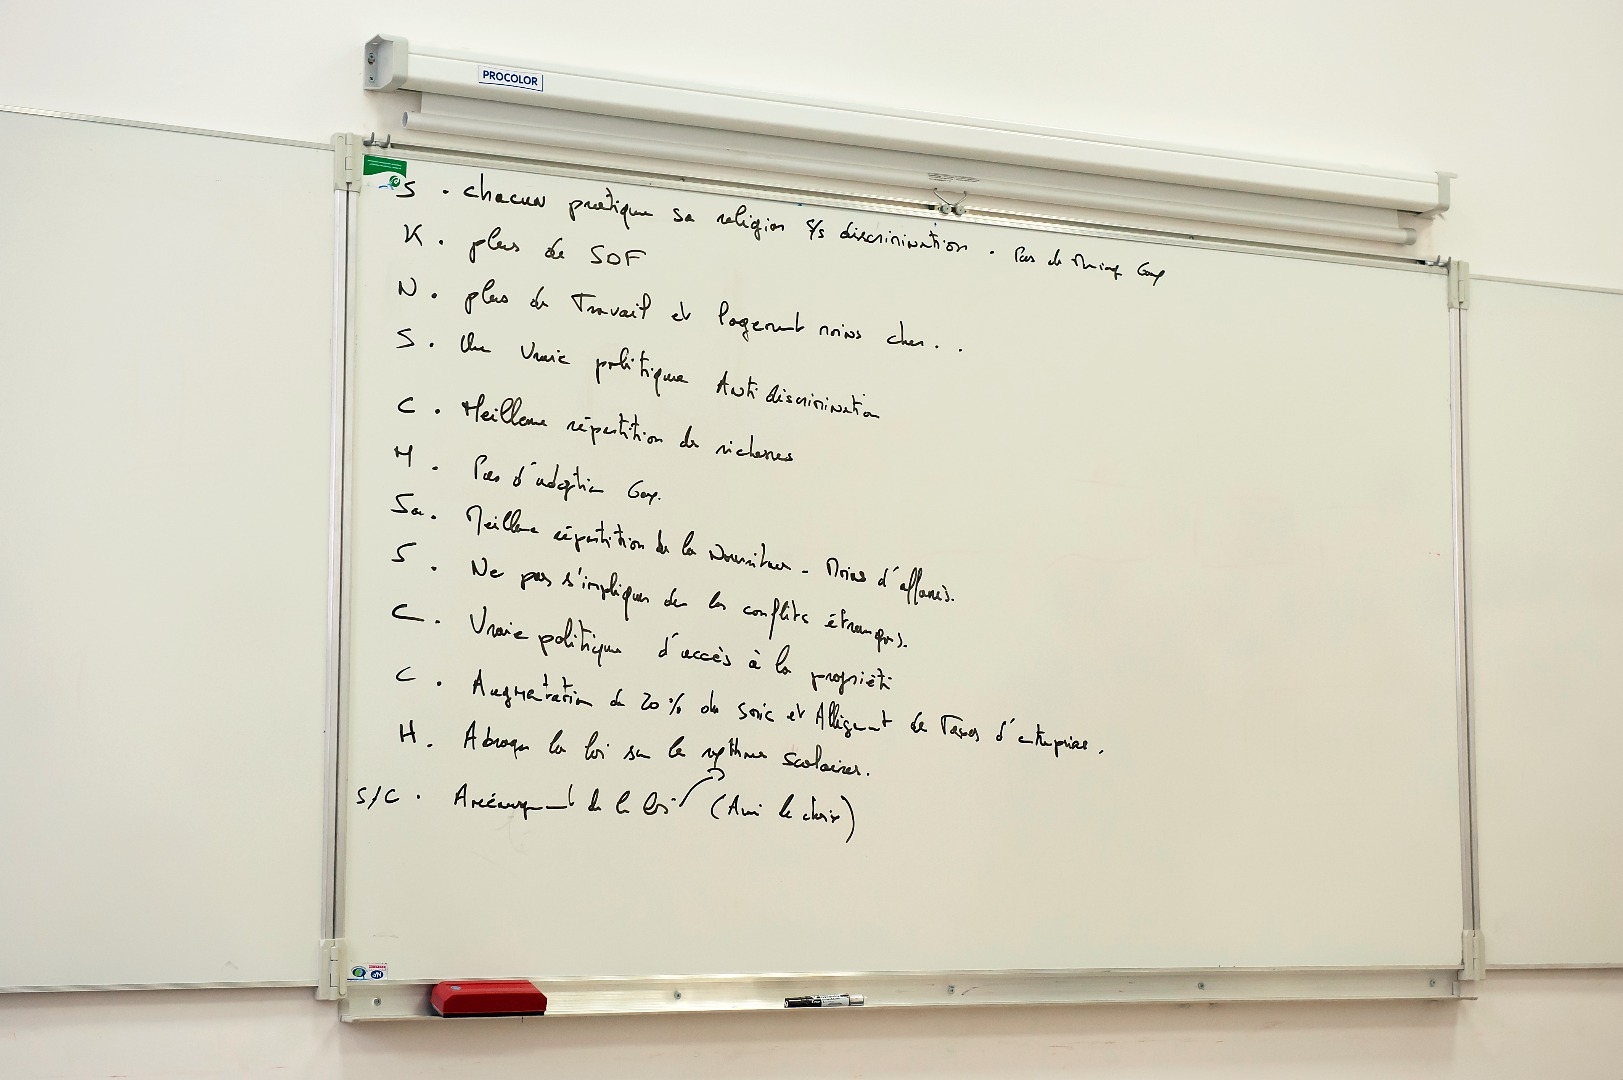 PROCOLOR
S. chacun pratique sa religion s/s discrimination. Pas de mariage Gay
K. plus de SDF
N. plus de Travail et logement moins cher..
S. Une vraie politique Anti discrimination
C. Meilleure répartition de richesses
M. Pas d'adoption Gay.
Sa. Meilleure répartition de la Nourriture - Moins d'affamés.
S. Ne pas s'impliquer dans les conflits étrangers.
C. Vraie politique d'accès à la propriété
C. Augmentation de 20% du smic et Allègement de Taxes d'entreprise.
H. Abroger la loi sur le rythme scolaires.
S/C. Aménagement de la loi (Avoir le choix)